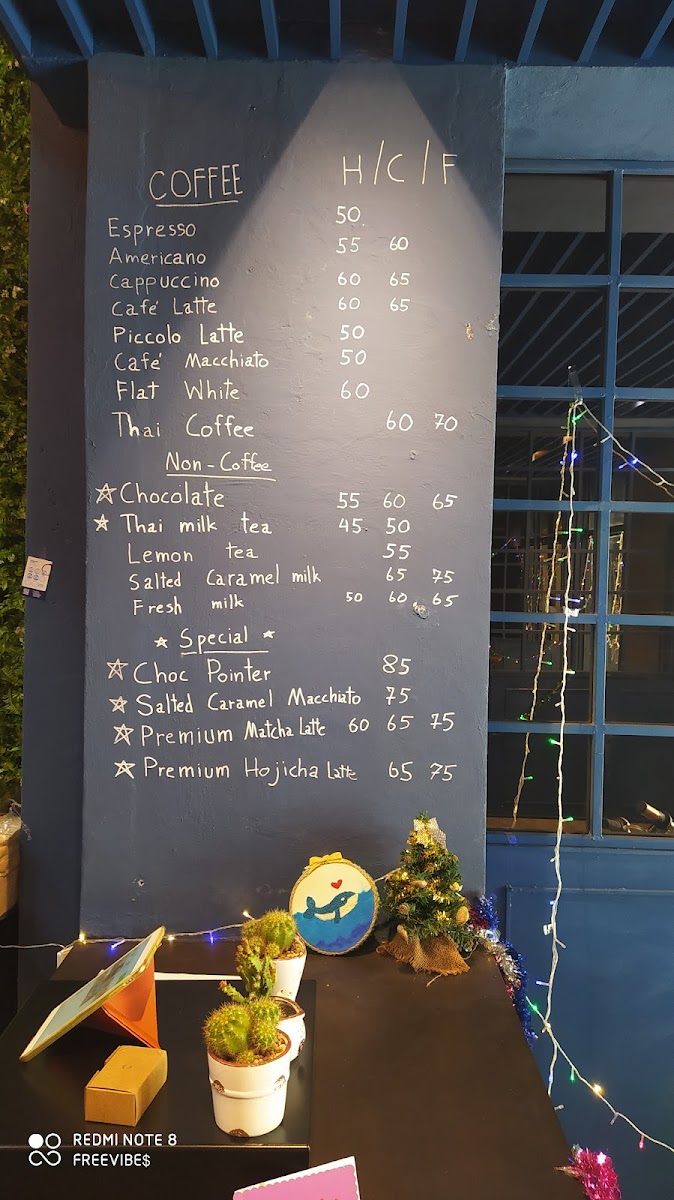 COFFEE H/C/F
Espresso 50
Americano 55 60
Cappuccino 60 65
Café Latte 60 65
Piccolo Latte 50
Café Macchiato 50
Flat White 60
Thai Coffee 60 70
Non-Coffee
Chocolate 55 60 65
Thai milk tea 45 50
Lemon tea 55
Salted Caramel milk 65 75
Fresh milk 50 60 65
Special
Choc Pointer 85
Salted Caramel Macchiato 75
Premium Matcha Latte 60 65 75
Premium Hojicha Latte 65 75
REDMI NOTE 8
FREEVIBE$